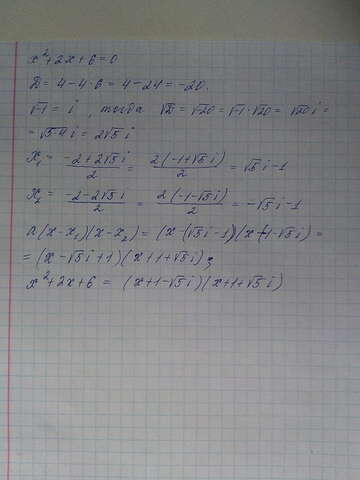 x²+2x+6=0
D = 4-4·6 = 4-24 = -20.
√-1 = i , тогда √D = √-20 = √-1·√20 = √20 i =
= √5·4 i = 2√5 i
x₁ = (-2+2√5 i)/2 = 2(-1+√5 i)/2 = √5 i-1
x₂ = (-2-2√5 i)/2 = 2(-1-√5 i)/2 = -√5 i-1
a(x-x₁)(x-x₂) = (x-(√5 i-1))(x-(-1-√5 i)) =
= (x-√5 i+1)(x+1+√5 i);
x²+2x+6 = (x+1-√5 i)(x+1+√5 i)